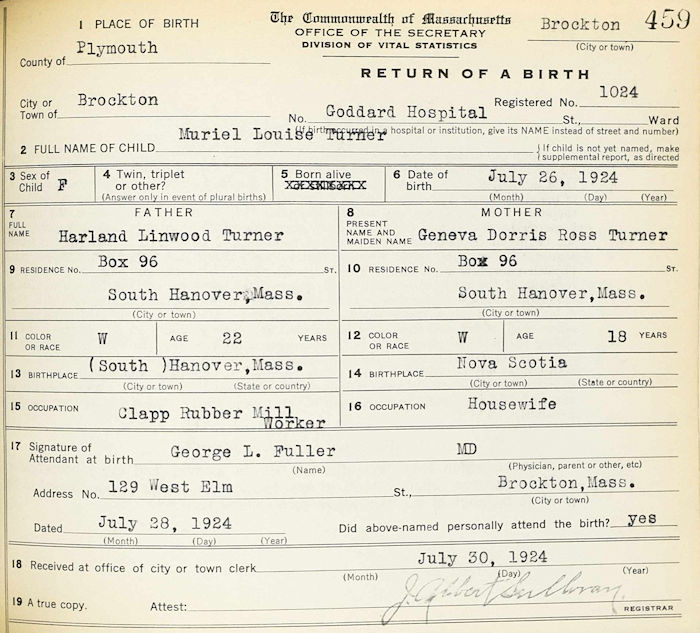 1 PLACE OF BIRTH
The Commonwealth of Massachusetts
OFFICE OF THE SECRETARY
DIVISION OF VITAL STATISTICS
Brockton 459
(City or town)
County of Plymouth
RETURN OF A BIRTH
City or Town of Brockton
Registered No. 1024
No. Goddard Hospital St., Ward
(If birth occurred in a hospital or institution, give its NAME instead of street and number)
2 FULL NAME OF CHILD Muriel Louise Turner
{ If child is not yet named, make
supplemental report, as directed
3 Sex of Child F
4 Twin, triplet or other?
(Answer only in event of plural births)
5 Born alive
6 Date of birth July 26, 1924
(Month) (Day) (Year)
7 FATHER
FULL NAME Harland Linwood Turner
8 MOTHER
PRESENT NAME AND MAIDEN NAME Geneva Dorris Ross Turner
9 RESIDENCE No. Box 96 ST.
South Hanover, Mass.
(City or town)
10 RESIDENCE No. Box 96 ST.
South Hanover, Mass.
(City or town)
11 COLOR OR RACE W AGE 22 YEARS
12 COLOR OR RACE W AGE 18 YEARS
13 BIRTHPLACE (South )Hanover,Mass.
(City or town) (State or country)
14 BIRTHPLACE Nova Scotia
(City or town) (State or country)
15 OCCUPATION Clapp Rubber Mill
Worker
16 OCCUPATION Housewife
17 Signature of Attendant at birth George L. Fuller MD
(Name) (Physician, parent or other, etc)
Address No. 129 West Elm St., Brockton,Mass.
(City or town)
Dated July 28, 1924
(Month) (Day) (Year)
Did above-named personally attend the birth? yes
18 Received at office of city or town clerk July 30, 1924
(Month) (Day) (Year)
19 A true copy. Attest: J. Albert
REGISTRAR